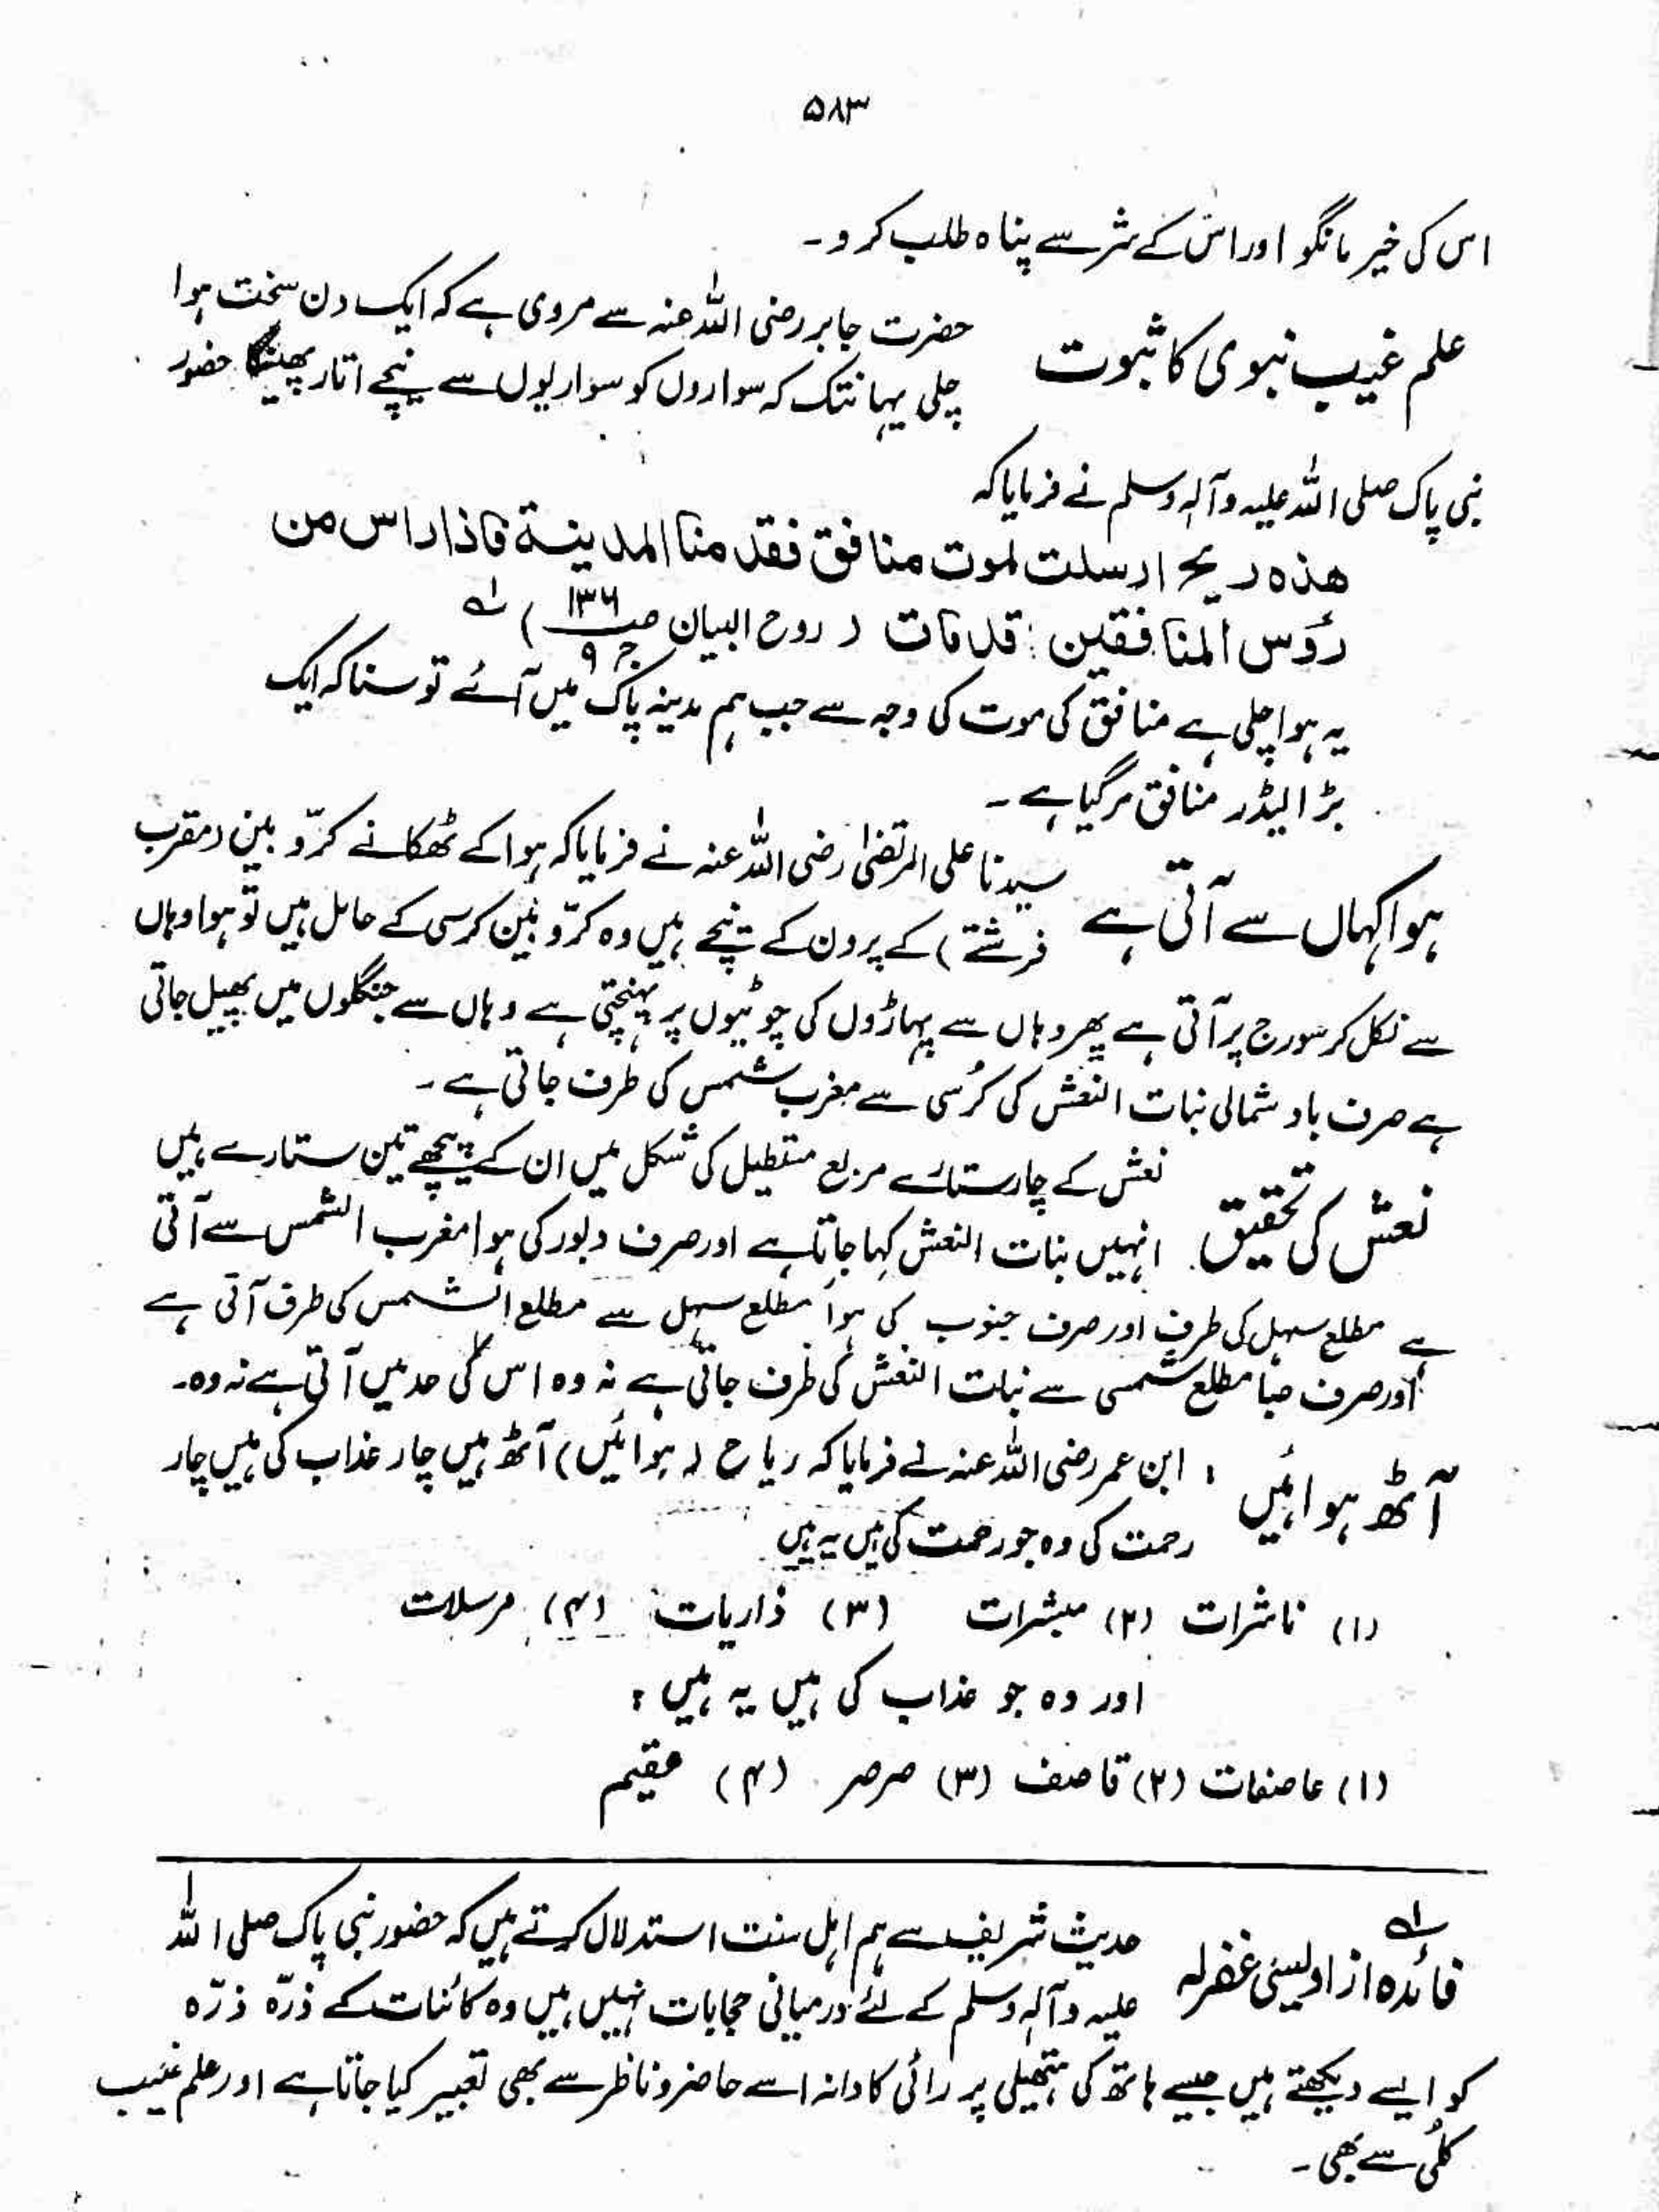 ۵۸۳
اس کی خیر مانگو اور اس کے شر سے پناہ طلب کرو۔
علم غیب نبوی کا ثبوت
حضرت جابر رضی اللہ عنہ سے مروی ہے کہ ایک دن سخت ہوا
چلی یہانتک کہ سواروں کو سواریوں سے نیچے اتار پھینکا حضور
نبی پاک صلی اللہ علیہ وآلہ وسلم نے فرمایا کہ
هذه ريح ارسلت لموت منافق فقد منا المدينة فاذا راس من
رؤس المنافقين : قد مات ( روح البیان صـ ۱۳۶ ج ۹ ) لہ
یہ ہوا چلی ہے منافق کی موت کی وجہ سے جب ہم مدینہ پاک میں آئے تو سنا کہ ایک
بڑا لیڈر منافق مر گیا ہے ۔
ہوا کہاں سے آتی ہے
سیدنا علی المرتضیٰ رضی اللہ عنہ نے فرمایا کہ ہوا کے ٹھکانے کرّو بین (مقرب
فرشتے ) کے پروں کے نیچے ہیں وہ کرّو بین کرسی کے حامل ہیں تو ہوا وہاں
سے نکل کر سورج پر آتی ہے پھر وہاں سے پہاڑوں کی چوٹیوں پر پہنچتی ہے وہاں سے جنگلوں میں پھیل جاتی
ہے صرف باد شمالی بنات النعش کی کُرسی سے مغرب شمس کی طرف جاتی ہے ۔
نعش کی تحقیق
نعش کے چار ستارے مربع مستطیل کی شکل میں ان کے پیچھے تین ستارے ہیں
انہیں بنات النعش کہا جاتا ہے اور صرف دبور کی ہوا مغرب الشمس سے آتی
ہے مطلع سہل کی طرف اور صرف جنوب کی ہوا مطلع سہل سے مطلع الشمس کی طرف آتی ہے
اور صرف صبا مطلع شمسی سے بنات النعش کی طرف جاتی ہے نہ وہ اس کی حد میں آتی ہے نہ وہ۔
آٹھ ہوائیں :
ابن عمر رضی اللہ عنہ نے فرمایا کہ ریاح ( ہوائیں) آٹھ ہیں چار عذاب کی ہیں چار
رحمت کی وہ جو رحمت کی ہیں یہ ہیں
(۱) ناشرات (۲) مبشرات (۳) ذاریات (۴) مرسلات
اور وہ جو عذاب کی ہیں یہ ہیں :
(۱) عاصفات (۲) قاصف (۳) صرصر (۴) عقیم
لہ
فائدہ از اویسی غفرلہ
حدیث شریف سے ہم اہل سنت استدلال کرتے ہیں کہ حضور نبی پاک صلی اللہ
علیہ وآلہ وسلم کے لئے درمیانی حجابات نہیں ہیں وہ کائنات کے ذرّہ ذرّہ
کو ایسے دیکھتے ہیں جیسے ہاتھ کی ہتھیلی پر رائی کا دانہ اسے حاضر و ناظر سے بھی تعبیر کیا جاتا ہے اور علم غیب
کلُی سے بھی ۔